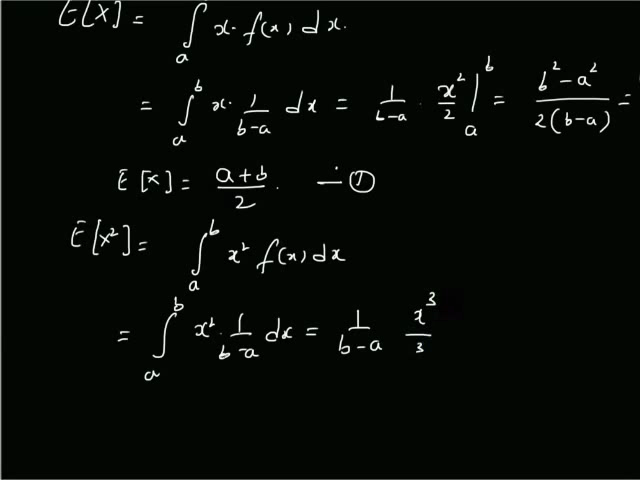 E[X] = ∫ₐ x. f(x) dx.
= ∫ₐᵇ x. 1/(b-a) dx = 1/(b-a) . x²/2 |ₐᵇ = (b²-a²)/(2(b-a)) =
E[x] = (a+b)/2 . — ①
E[x²] = ∫ₐᵇ x² f(x) dx
= ∫ₐᵇ x² . 1/(b-a) dx = 1/(b-a) x³/3